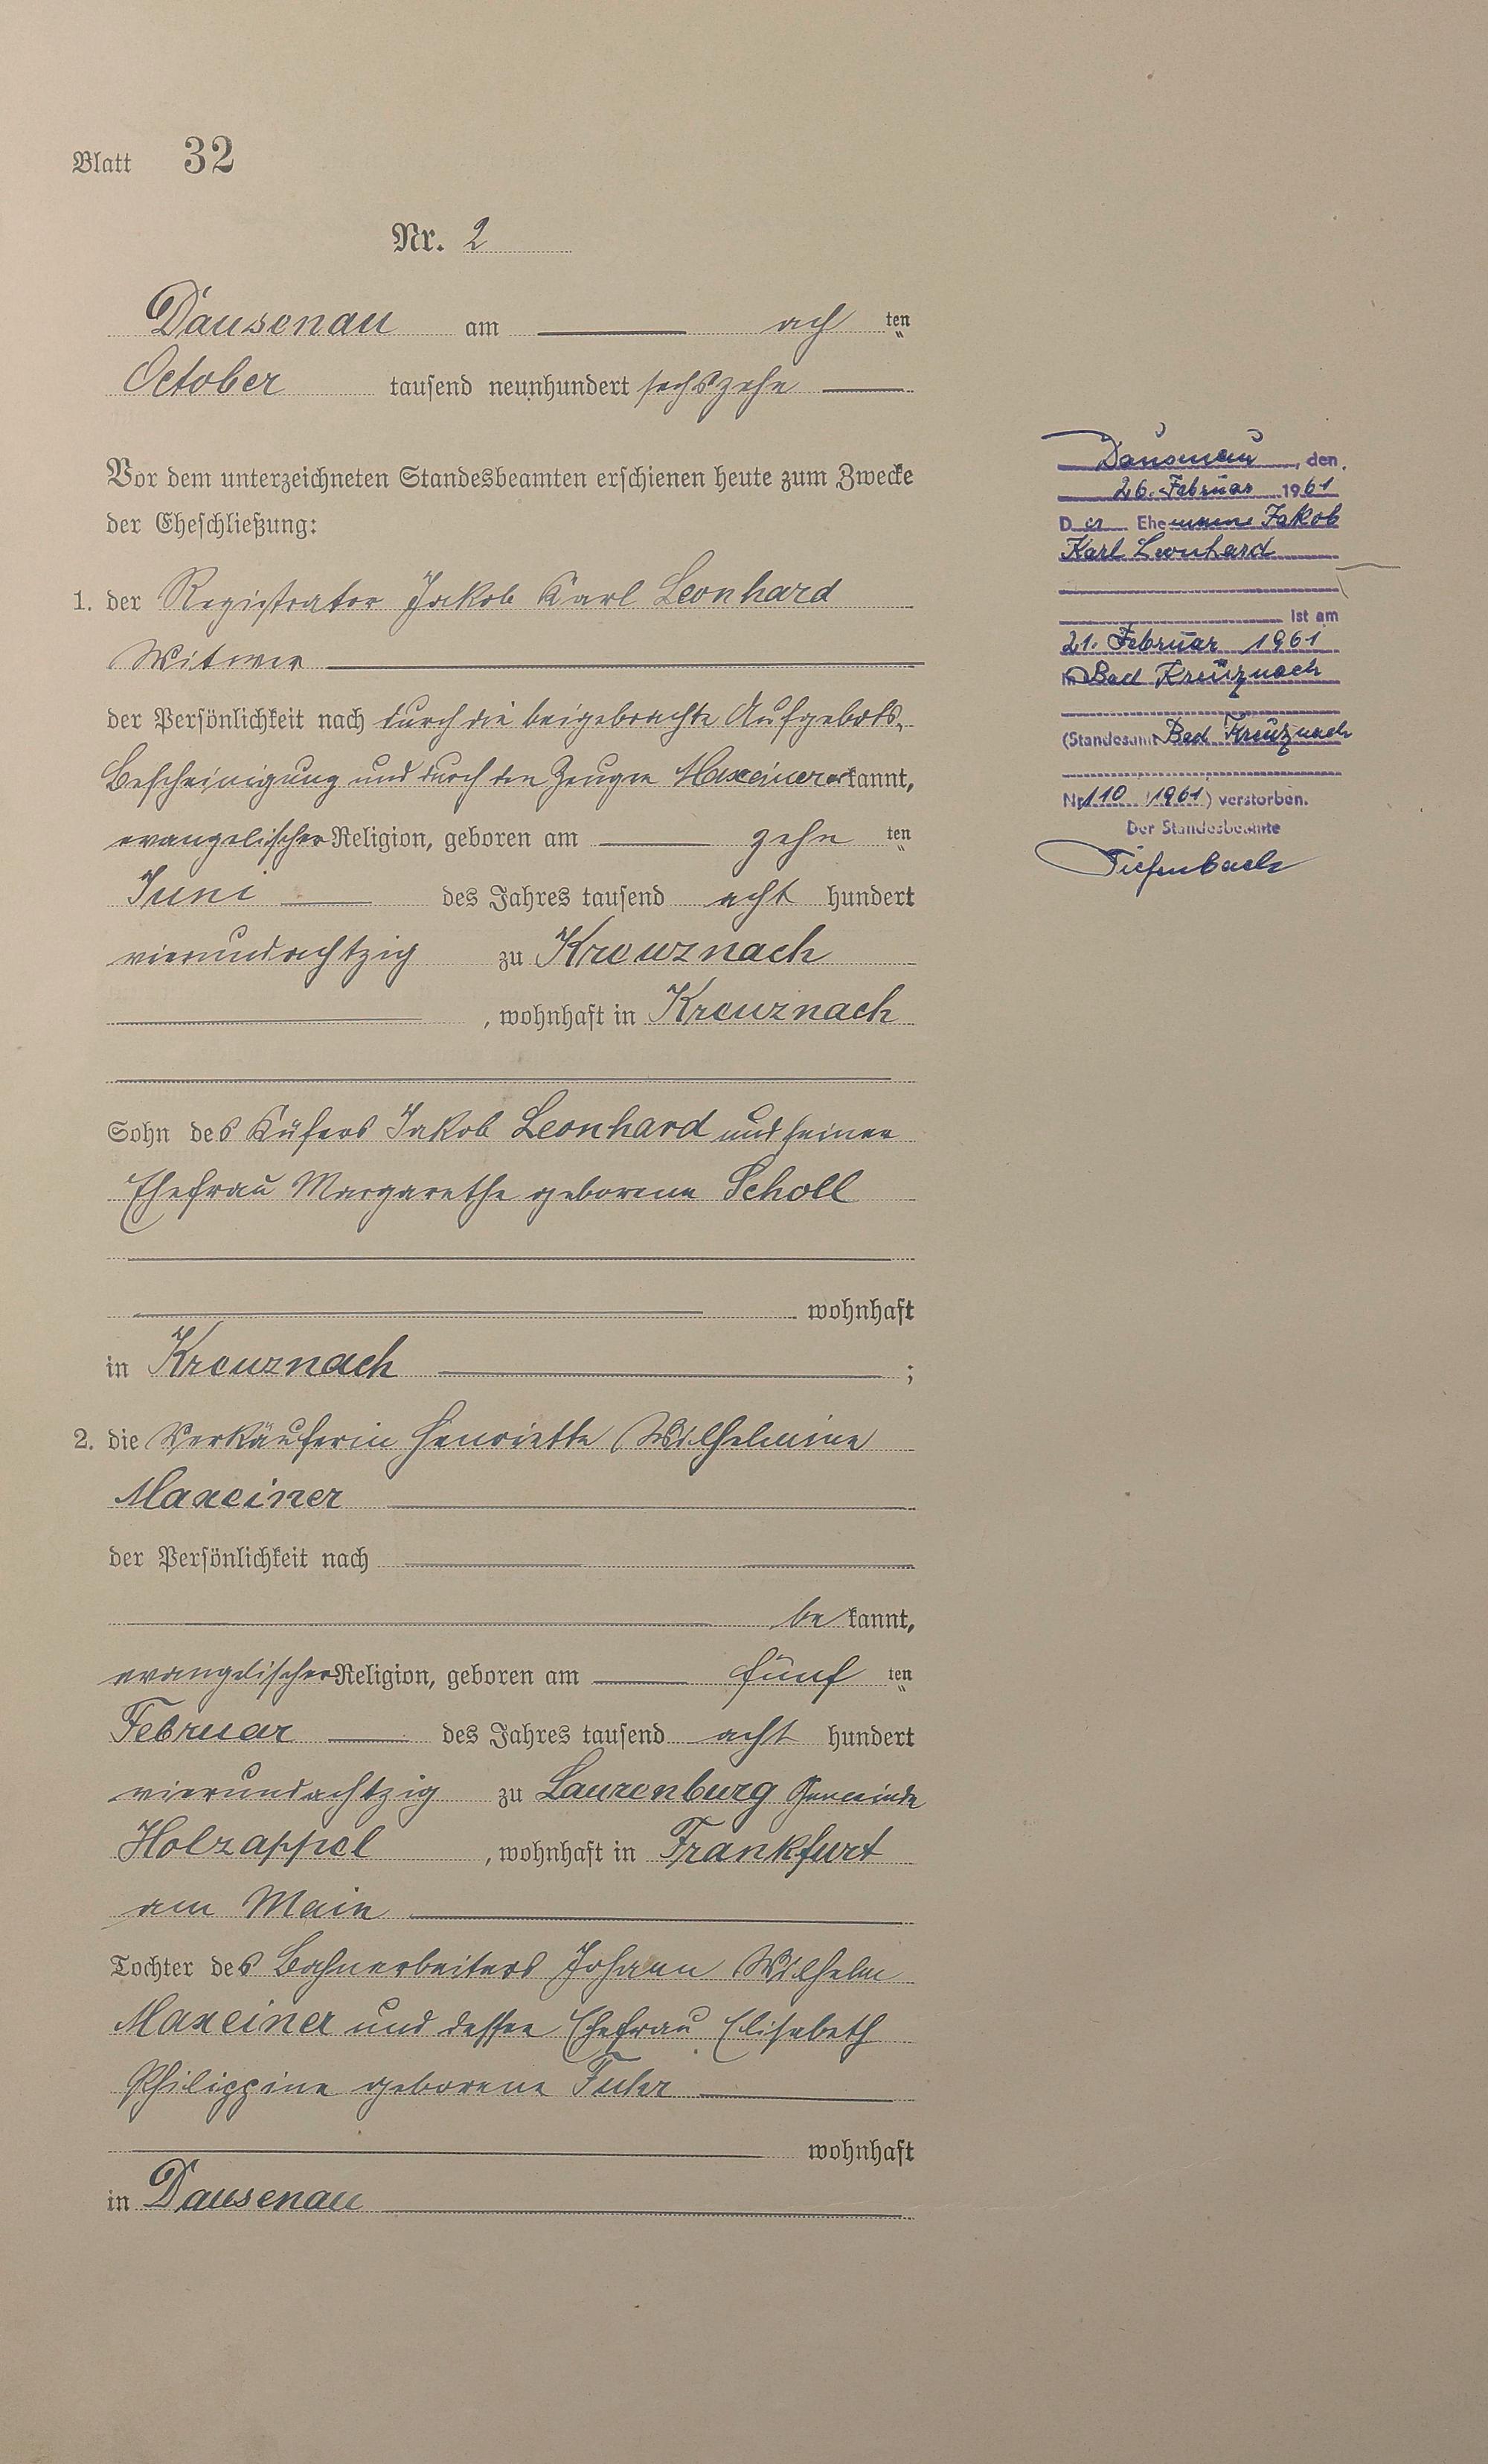 Blatt 32
Nr. 2
Dausenau am ach ten
October tausend neunhundert sechszehn
Vor dem unterzeichneten Standesbeamten erschienen heute zum Zwecke
der Eheschließung:
1. der Registrator Jakob Karl Leonhard
Witwer
der Persönlichkeit nach durch die beigebrachte Aufgebots-
Bescheinigung und durch den Zeugen Maxeiner erkannt,
evangelischer Religion, geboren am zehn ten
Juni des Jahres tausend acht hundert
vierundachtzig zu Kreuznach
, wohnhaft in Kreuznach
Sohn des Küfers Jakob Leonhard und seiner
Ehefrau Margarethe geborene Scholl
wohnhaft
in Kreuznach ;
2. die Verkäuferin Henriette Wilhelmine
Maxeiner
der Persönlichkeit nach
be kannt,
evangelischer Religion, geboren am fünf ten
Februar des Jahres tausend acht hundert
vierundachtzig zu Laurenburg Gemeinde
Holzappel , wohnhaft in Frankfurt
am Main
Tochter des Bahnarbeiters Johann Wilhelm
Maxeiner und dessen Ehefrau Elisabeth
Philippine geborene Fuhr
wohnhaft
in Dausenau
Dausenau, den
26. Februar 1961
Der Ehemann Jakob
Karl Leonhard
ist am
21. Februar 1961
in Bad Kreuznach
(Standesamt Bad Kreuznach
Nr 110 1961) verstorben.
Der Standesbeamte
Tiefenbach